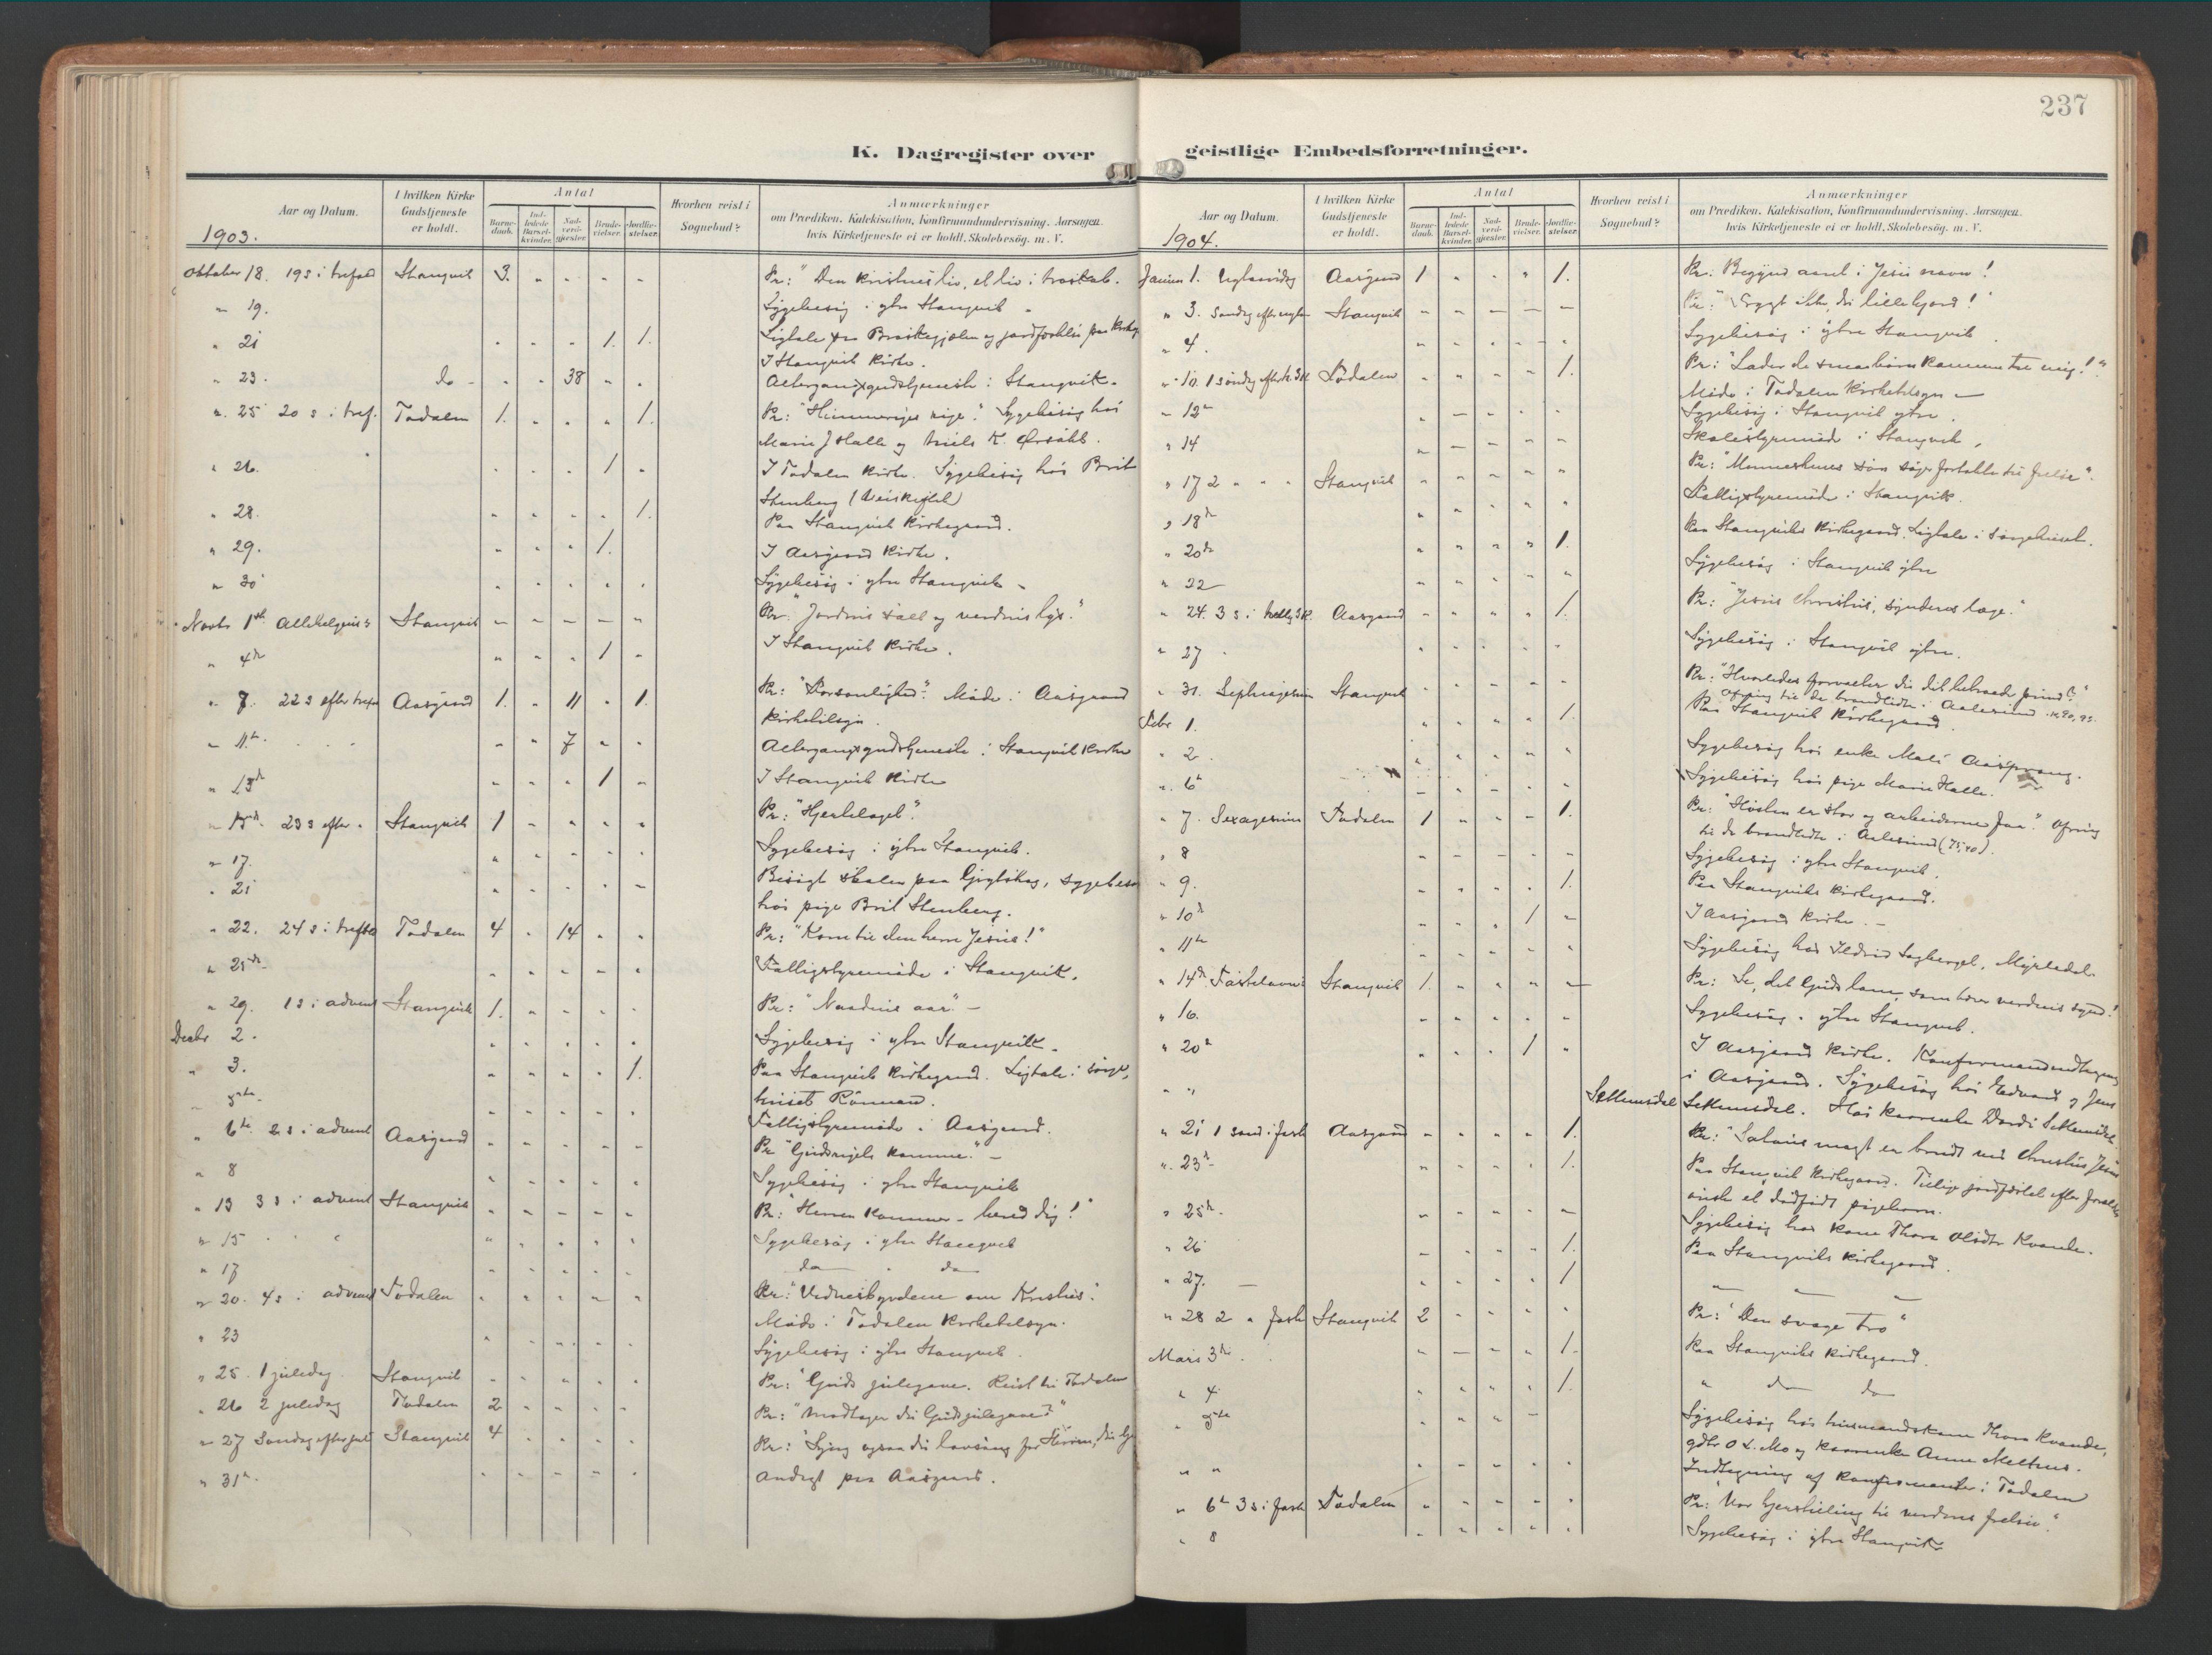 237
K. Dagregister over geistlige Embedsforretninger.
Aar og Datum.
I hvilken Kirke Gudstjeneste er holdt.
Antal
Barne-daab.
Ind-ledede Barsel-kvinder.
Nad-verd-gjester.
Brude-vielser.
Jordfæ-stelser.
Hvorhen reist i Sognebud?
Anmærkninger
om Prædiken, Katekisation, Konfirmandundervisning, Aarsagen,
hvis Kirketjeneste ei er holdt, Skolebesög, m. V.
1903.
Oktober 18. 19 s i trefold Stangvik 3. " " " " Pr: "Den kristnes liv, et liv i troskab.
" 19. Sygebesøg i ytre Stangvik
" 21 " " " 1. 1. Ligtale paa
I Stangvik kirke.
" 23. do " " 38 " " Altergangsgudstjeneste i Stangvik.
" 25 20 s i tref. Todalen 1. " " " 1. Pr: "Himmeriges rige." Sygebesøg hos
Marie J Halle og Niels K.
" 26. " " " 1 " I Todalen kirke. Sygebesøg hos Brit
Stenberg
" 28. " " " " 1. Paa Stangvik kirkegaard.
" 29. " " " 1. I Aasgaard kirke.
" 30 " " " " " Sygebesøg i ytre Stangvik
Novbr 1ste Allehelgens Stangvik " " " " " Pr. "Jordens salt og verdens lys."
" 4de " " " 1 " I Stangvik kirke.
" 7. 22 s efter tref Aasgaard 1. " 11 " 1. Pr: "Forsonlighed". Møde i Aasgaard
kirketilsyn.
" 11te " " 7 " " Altergangsgudstjeneste i Stangvik kirke
" 13de " " " 1 " I Stangvik kirke
" 15de 23 s efter " Stangvik 1 " " " " Pr: "Hjertelaget".
" 17. " " " " " Sygebesøg i ytre Stangvik.
" 21 " " " " " Besøgt skolen paa
hos pige Brit Stenberg.
" 22. 24 s i trefol Todalen 4 " 14 " " Pr: "Kom til den herre Jesus!"
" 25de " " " " " Fattigstyremøde i Stangvik.
" 29. 1 s i advent Stangvik 1. " " " " Pr: "Naadens aar." –
Decbr 2. " " " " " Sygebesøg i ytre Stangvik.
" 3. " " " " 1. Paa Stangvik kirkegaard. Ligtale i sørge-
huset
" 5te " " " " " Fattigstyremøde i Aasgaard.
" 6te 2 s i advent Aasgaard " " " " " Pr "Gudsrigets komme." –
" 8 " " " " " Sygebesøg i ytre Stangvik
" 13 3 s i advent Stangvik " " " " " Pr: "Herren kommer – bered dig!"
" 15 " " " " " Sygebesøg i ytre Stangvik
" 17 " " " " " do " do
" 20. 4 s i advent Todalen " " " " " Pr: "Vidnesbyrdene om Kristus".
Møde i Todalen kirketilsyn.
" 23 " " " " " Sygebesøg i ytre Stangvik.
" 25. 1 juledag Stangvik " " " " " Pr: "Guds julegave. Reist til Todalen
" 26 2 juledag Todalen 2 " " " " Pr: "Modtager du Guds julegave?"
" 27 Søndag efter jul Stangvik 4 " " " " Pr: "Syng ogsaa du lovsang for Herren,
" 31te " " " " " Andagt paa Aasgaard.
Aar og Datum.
I hvilken Kirke Gudstjeneste er holdt.
Antal
Barne-daab.
Ind-ledede Barsel-kvinder.
Nad-verd-gjester.
Brude-vielser.
Jordfæ-stelser.
Hvorhen reist i Sognebud?
Anmærkninger
om Prædiken, Katekisation, Konfirmandundervisning, Aarsagen,
hvis Kirketjeneste ei er holdt, Skolebesög, m. V.
1904.
Januar 1. Nytaarsdag Aasgaard 1 " " " 1. Pr: Begynd aaret i Jesu navn!
" 3. Søndag efter nytaar Stangvik " " " " " Pr: "Frygt ikke, du lille hjord!"
" 4. " " " " " Sygebesøg i ytre Stangvik.
" 10. 1 søndag efter h.3k. Todalen " " " " 1. Pr: "Lader de smaa børn komme til mig!"
Møde i Todalen kirketilsyn –
" 12te " " " " " Sygebesøg i Stangvik ytre.
" 14 " " " " " Skolestyremøde i Stangvik.
" 17 2 " " " Stangvik " " " " " Pr: "Menneskenes søn søger fortabte til frelse".
" 18de " " " " " Fattigstyremøde i Stangvik.
" 20de " " " " 1. Paa Stangviks kirkegaard. Ligtale i sørgehuset.
" 22 " " " " " Sygebesøg i Stangvik ytre
" 24. 3 s i hellig 3 k. Aasgaard " " " " 1. Pr: "Jesus Christus, synderes læge."
" 27 " " " " " Sygebesøg i Stangvik ytre.
" 31. Septuagesima Stangvik " " " " " Pr: "Hvorledes forvalter du dit betroede pund?"
Ofring til de brandlidte i Aalesund
Febr 1. " " " " 1. Paa Stangvik kirkegaard.
" 2. " " " " " Sygebesøg hos enke Mali
" 6te " " " " " Sygebesøg hos pige Marie Halle.
" 7. Sexagesima Todalen 1 " " " 1. Pr: "Høsten er stor og arbeiderne faa." Ofring
til de brandlidte i Aalesund
" 8 " " " " " Sygebesøg i ytre Stangvik.
" 9. " " " " 1. Paa Stangviks kirkegaard.
" 10de " " " 1 " I Aasgaard kirke. –
" 11te " " " " " Sygebesøg hos
" 14de Fastelavns Stangvik 1. " " " " Pr: Se, det Guds lam, som bærer verdens synd!
" 16. " " " " " Sygebesøg i ytre Stangvik.
" 20de " " " 1 " I Aasgaard kirke. Konfirmandindtegning
" " Settemsdal i Aasgaard. Sygebesøg hos Edvard og Jens
Settemsdal. Hos kaarenke Dordi Settemsdal
" 21 1 sønd i fast Aasgaard " " " " 1. Pr: "Satans magt er brudt ved Christus Jesus
" 23de " " " " 1. Paa Stangvik kirkegaard. Tillige jordfæstet efter forældres
ønske et dødfødt pigebarn.
" 25de " " " " " Sygebesøg hos kone Thora Olsdtr Kvande.
" 26 " " " " 1. Paa Stangviks kirkegaard.
" 27. " " " " 1 " " "
" 28 2 " fast Stangvik 2 " " " " Pr: "Den svage tro"
Mars 3de " " " " 1. Paa Stangviks kirkegaard.
" 4 " " " " 1. " do do
" 5te " " " " Sygebesøg hos husmandskone Thora Kvande,
gdbr O L. Mo og kaarenke Anne
" " " " " " " Indtegning af konfirmanter i Todalen
" 6te 3 s i fast Todalen " " " " " Pr: "Vor til verdens frelser."
" 8 " " " " " Sygebesøg i ytre Stangvik